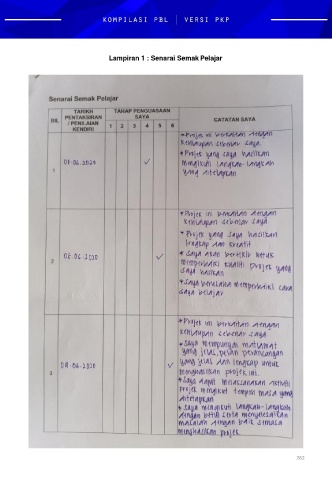 KOMPILASI PBL | VERSI PKP
Lampiran 1 : Senarai Semak Pelajar
Senarai Semak Pelajar
BIL
TARIKH
PENTAKSIRAN
/ PENILAIAN
KENDIRI
TAHAP PENGUASAAN
SAYA
1 2 3 4 5 6
CATATAN SAYA
1
✓
* Projek ini berkaitan dengan
kehidupan sebenar saya.
* Projek yang saya hasilkan
mengikut langkah-langkah
yang ditetapkan
2
✓
* Projek ini berkaitan dengan
kehidupan sebenar saya
* Projek yang saya hasilkan
lengkap dan kreatif
* Saya akan berfikir untuk
memperbaiki kualiti projek yang
saya hasilkan
* Saya berusaha memperbaiki cara
saya belajar
3
✓
* Projek ini berkaitan dengan
kehidupan sebenar saya
* Saya mempunyai matlamat
yang jelas, pelan perancangan
yang jelas dan lengkap untuk
menghasilkan projek ini.
* Saya dapat melaksanakan aktiviti
projek mengikut tempoh masa yang
ditetapkan
* Saya mengikuti langkah-langkah
dengan betul serta menyelesaikan
masalah dengan baik semasa
menghasilkan projek